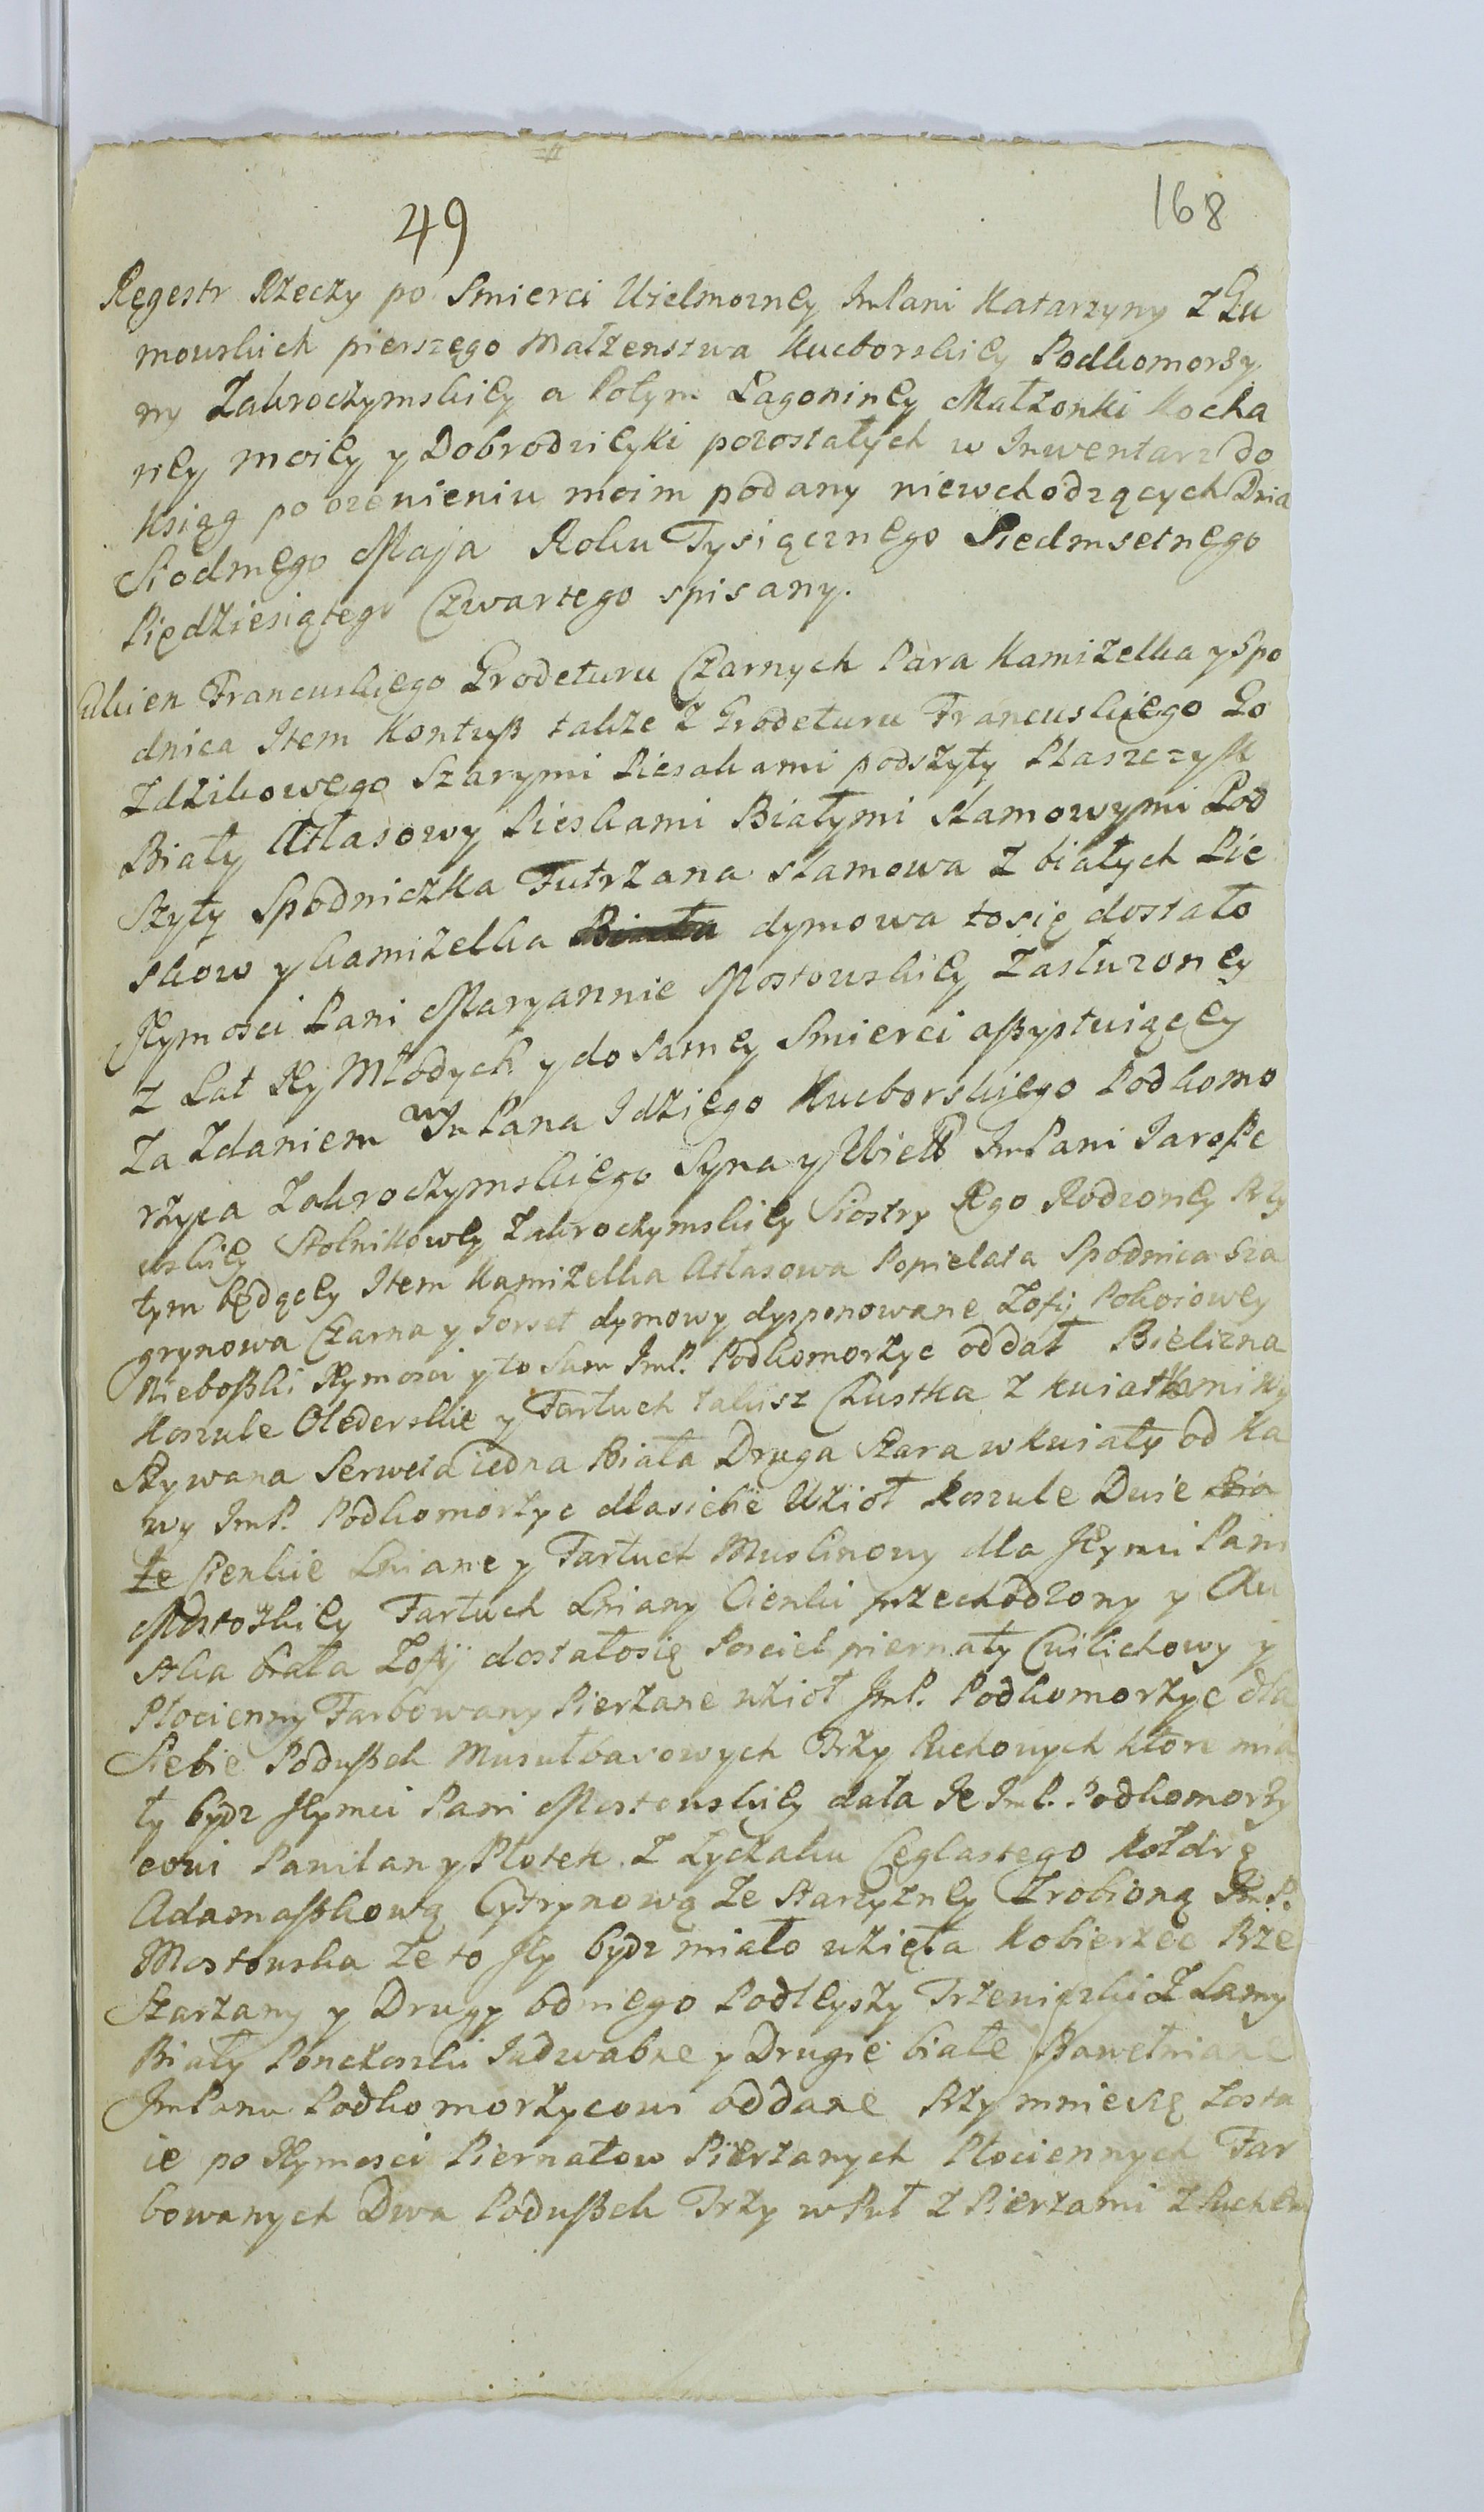 168
49
Regestr Rzeczy po Smierci Wielmozney ImPani Katarzyny z Gu
mowskich pierszego Małzenstwa Kucborskiey Podkomorzy
ny Zakroczymskiey a Potym Łagoniney Małzonki Kocha
ney moiey y Dobrodzieyki pozostałych w Inwentarz do
Ksiąg po ozenieniu moim podany niewchodzących Dnia
Siodmego Maja Roku Tysiącznego Siedmsetnego
Pięcdziesiątego Czwartego spisany.
Sukien Francuskiego Grodeturu Czarnych Para Kamizelka y Spo
dnica Item Kontusz takze z Grodeturu Francuskiego Go
zdzikowego Szarymi Piesakami podszyty Płaszczyk
Biały Atłasowy Pieskami Białymi Stamowymi Pod
Szyty Spodniczka Futrzana stamowa z białych Pie
skow y kamizelka Biała dymowa to się dostało
Jeymosci Pani Maryannie Mostowskiey Zasłuzoney
z Lat Jey Młodych y do samey Smierci assystuiącey
Za Zdaniem W Im Pana Idziego Kucborskiego Podkomo
rzyca Zakroczymskiego Syna y Wiel ImPani Jarosze
wskiey Stolnikowey Zakroczymskiey Siostry Jego Rodzoney Przy
tym będącey Item Kamizelka Atłasowa Popielata Spodnica Sza
grynowa Czarna y Gorset dymowy dysponowane Zofij Pokoiowey
Nieboszki Jeymosci y to Sam ImP. Podkomorzyc oddał Bielizna
Koszule Olęderskie y Fartuch takisz Chustka z kwiatkami Wy
Szywana Serweta iedna Biała Druga Szara w kwiaty od Ka
wy ImP. Podkomorzyc dla siebie Wzioł Koszule Dwie Bia
łe Cienkie Lniane y Fartuch Muslinowy dla Jeymci Pani
Mostoskiey Fartuch Lniany Cienki przechodzony y Chu
stka biała Zofij dostałosię Posciel piernaty Cwilichowy y
Płocienny Farbowany Pierzane wzioł ImP. Podkomorzyc dla
Siebie Poduszek Musułbasowych Trzy Puchowych ktore mia
ły bydz Jeymci Pani Mostowskiey dała Je ImP. Podkomorzy
cowi Pawilan y Płotek z Łyczaku Ceglastego Kołdrę
Adamaszkową Cytrynową ze Starzyzney Zrobioną ImP.
Mostowska ze to Jey bydz miało wzięła Kobierzec Prze
Starzany y Drugy odniego Podleyszy Trzewiczki z Lamy
Biały Ponczoszki Jedwabne y Drugie białe Bawełniane
ImPanu Podkomorzycowi oddane Przy mnie się zosta
ie po Jeymosci Piernatow Pierzanych Płociennych Far
bowanych Dwa Poduszek Trzy w Puł z Pierzami z Puchem